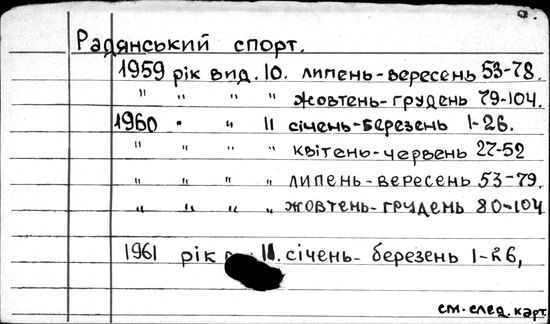 Радянський спорт.
1959 рік вид. 10. липень-вересень 53-78.
" " " " жовтень-грудень 79-104.
1960 " " 11 січень-березень 1-26.
" " " " квітень-червень 27-52
" " " " липень-вересень 53-79.
" " " " жовтень-грудень 80-104
1961 рік 11. січень-березень 1-26,
см. след. карт